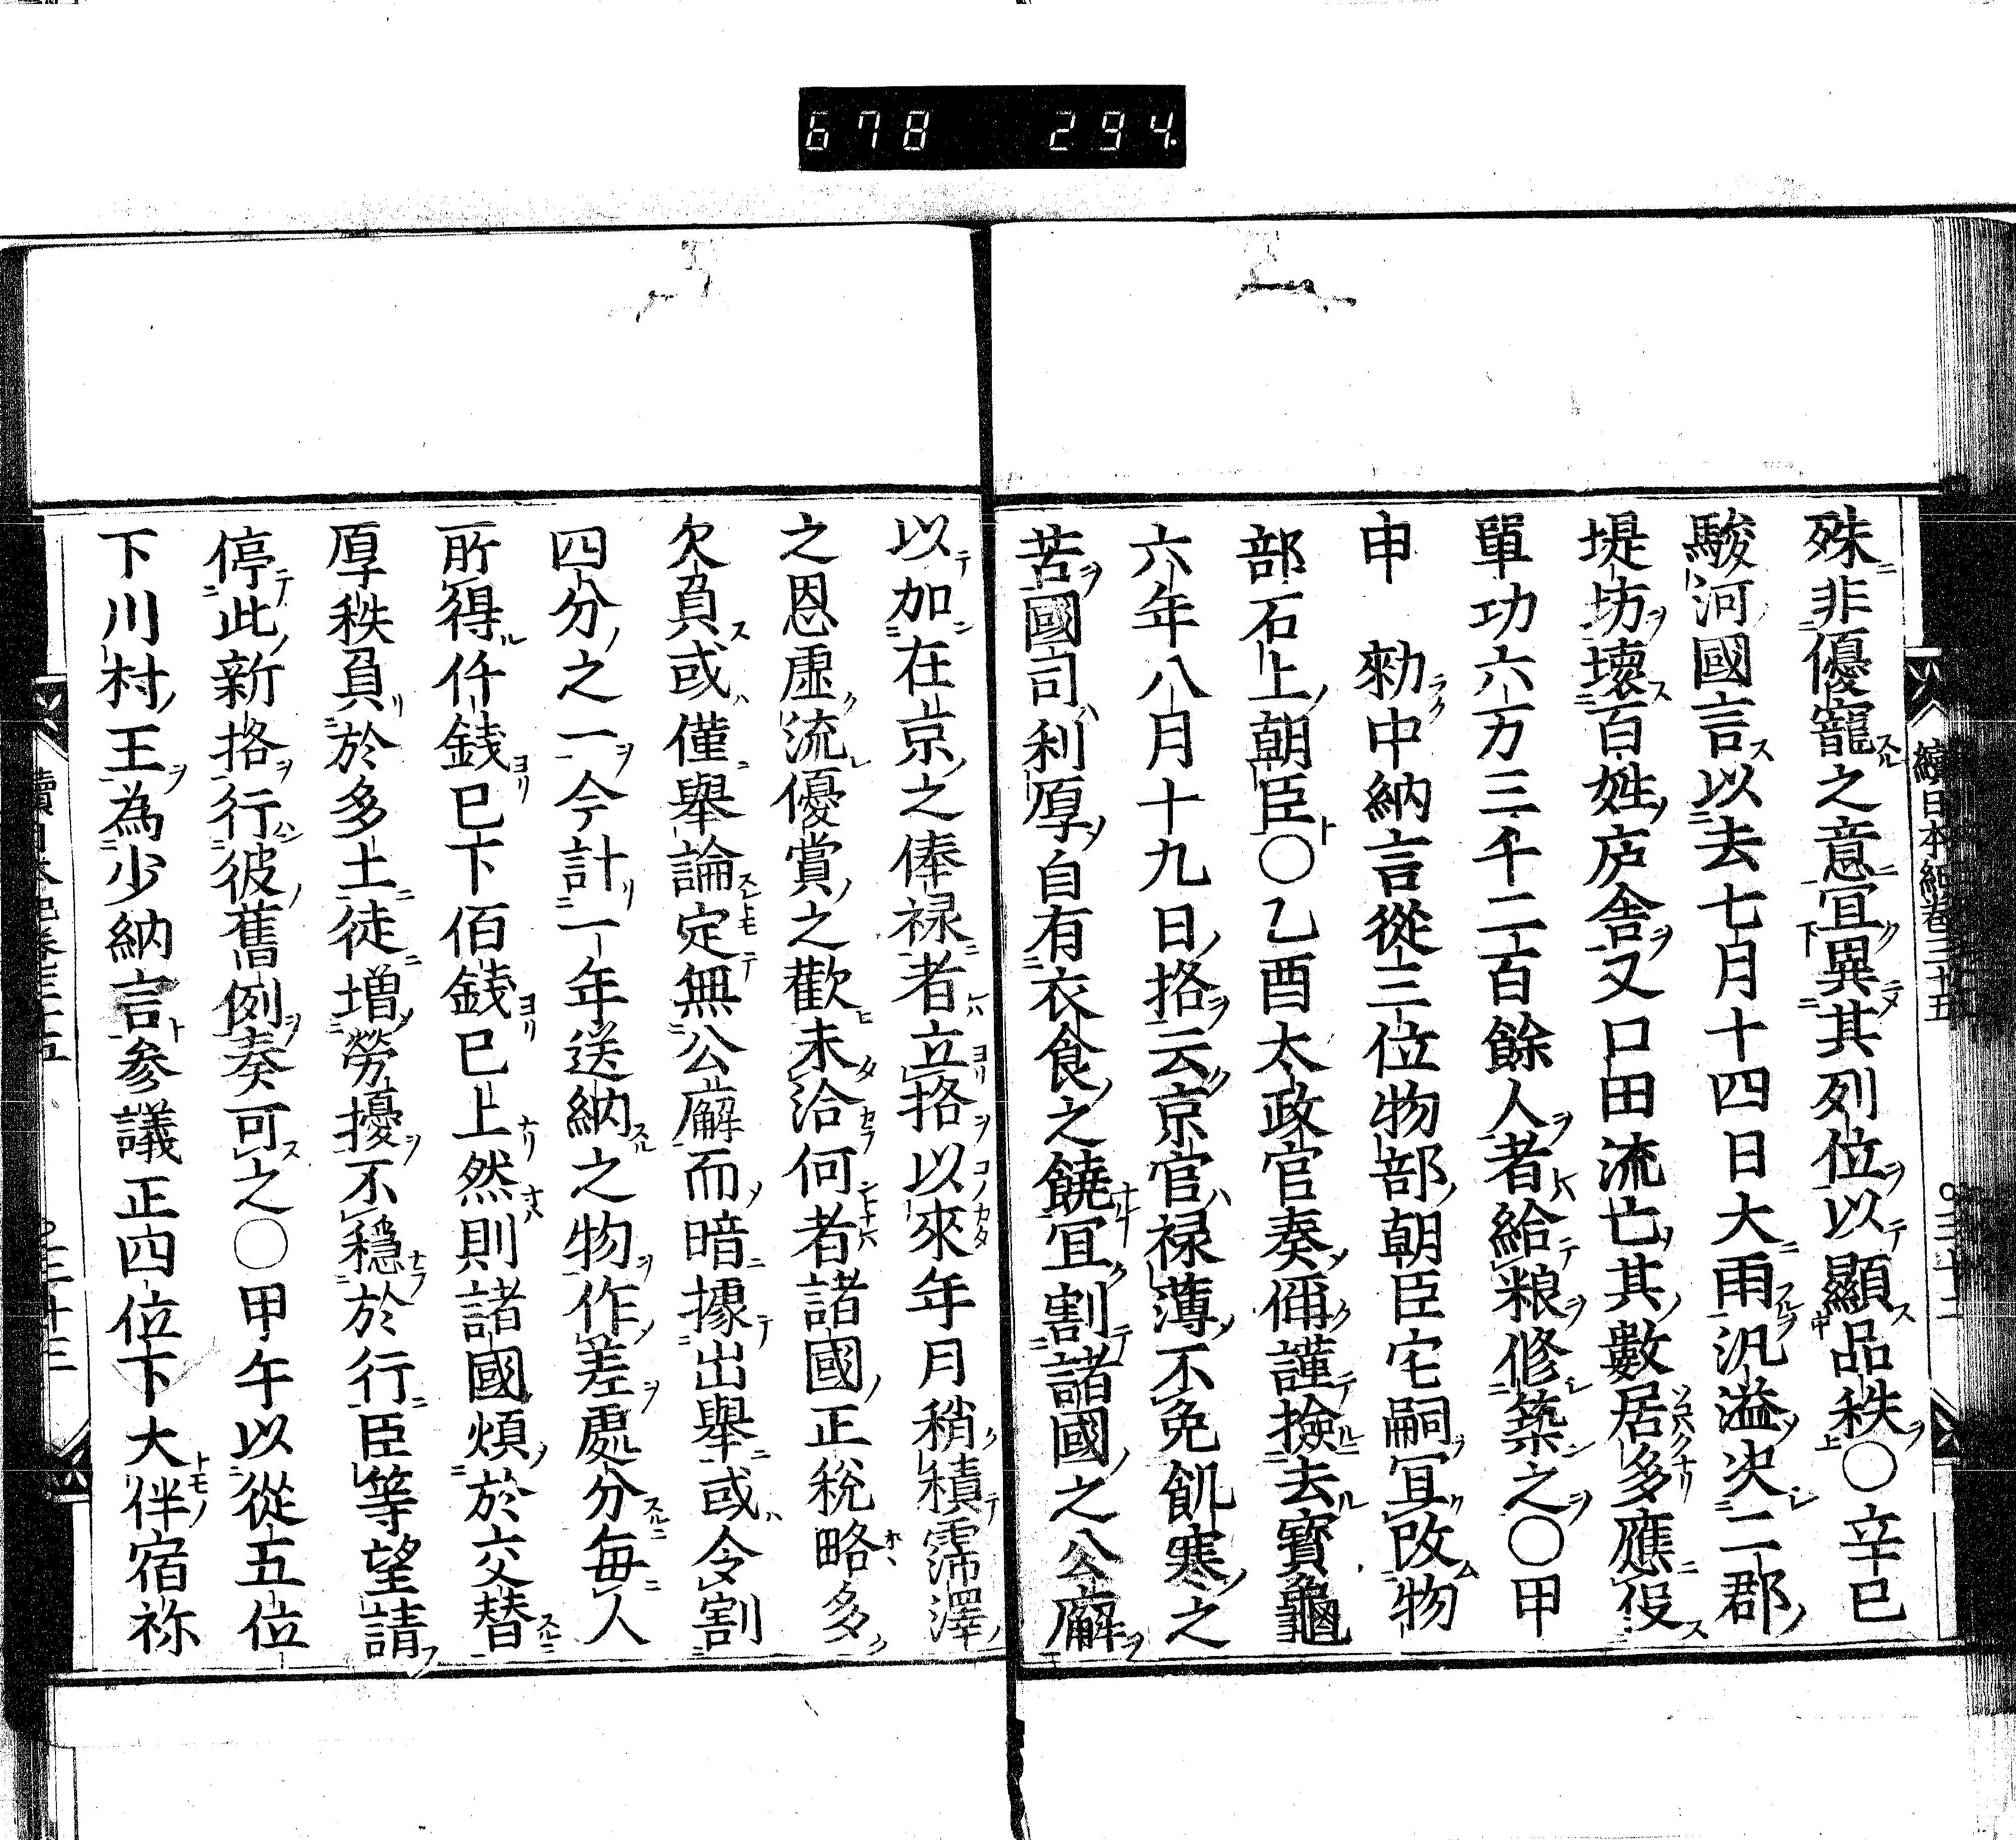 678 294
續日本紀卷三十五 ○三十二
殊非優寵之意宜異其列位以顯品秩○辛巳
駿河國言以去七月十四日大雨汎溢决二郡
堤坊壞百姓庐舍又口田流亡其數居多應役
單功六万三千二百餘人者給粮修築之○甲
申 勑中納言從三位物部朝臣宅嗣宜改物
部石上朝臣○乙酉太政官奏偁謹撿去寶龜
六年八月十九日挌云京官禄薄不免飢寒之
苦國司利厚自有衣食之饒宜割諸國之公廨
以加在京之俸禄者立挌以來年月稍積霈澤
之恩虛流優賞之歡未洽何者諸國正稅略多
欠負或僅舉論定無公廨而暗據出舉或令割
四分之一今計一年送納之物作差處分每人
所得仟錢已下佰錢已上然則諸國煩於交替
厚秩負於多土徒增勞擾不穩於行臣等望請
停此新挌行彼舊例奏可之○甲午以從五位
下川村王為少納言參議正四位下大伴宿祢
續日本紀卷三十五 ○三十三